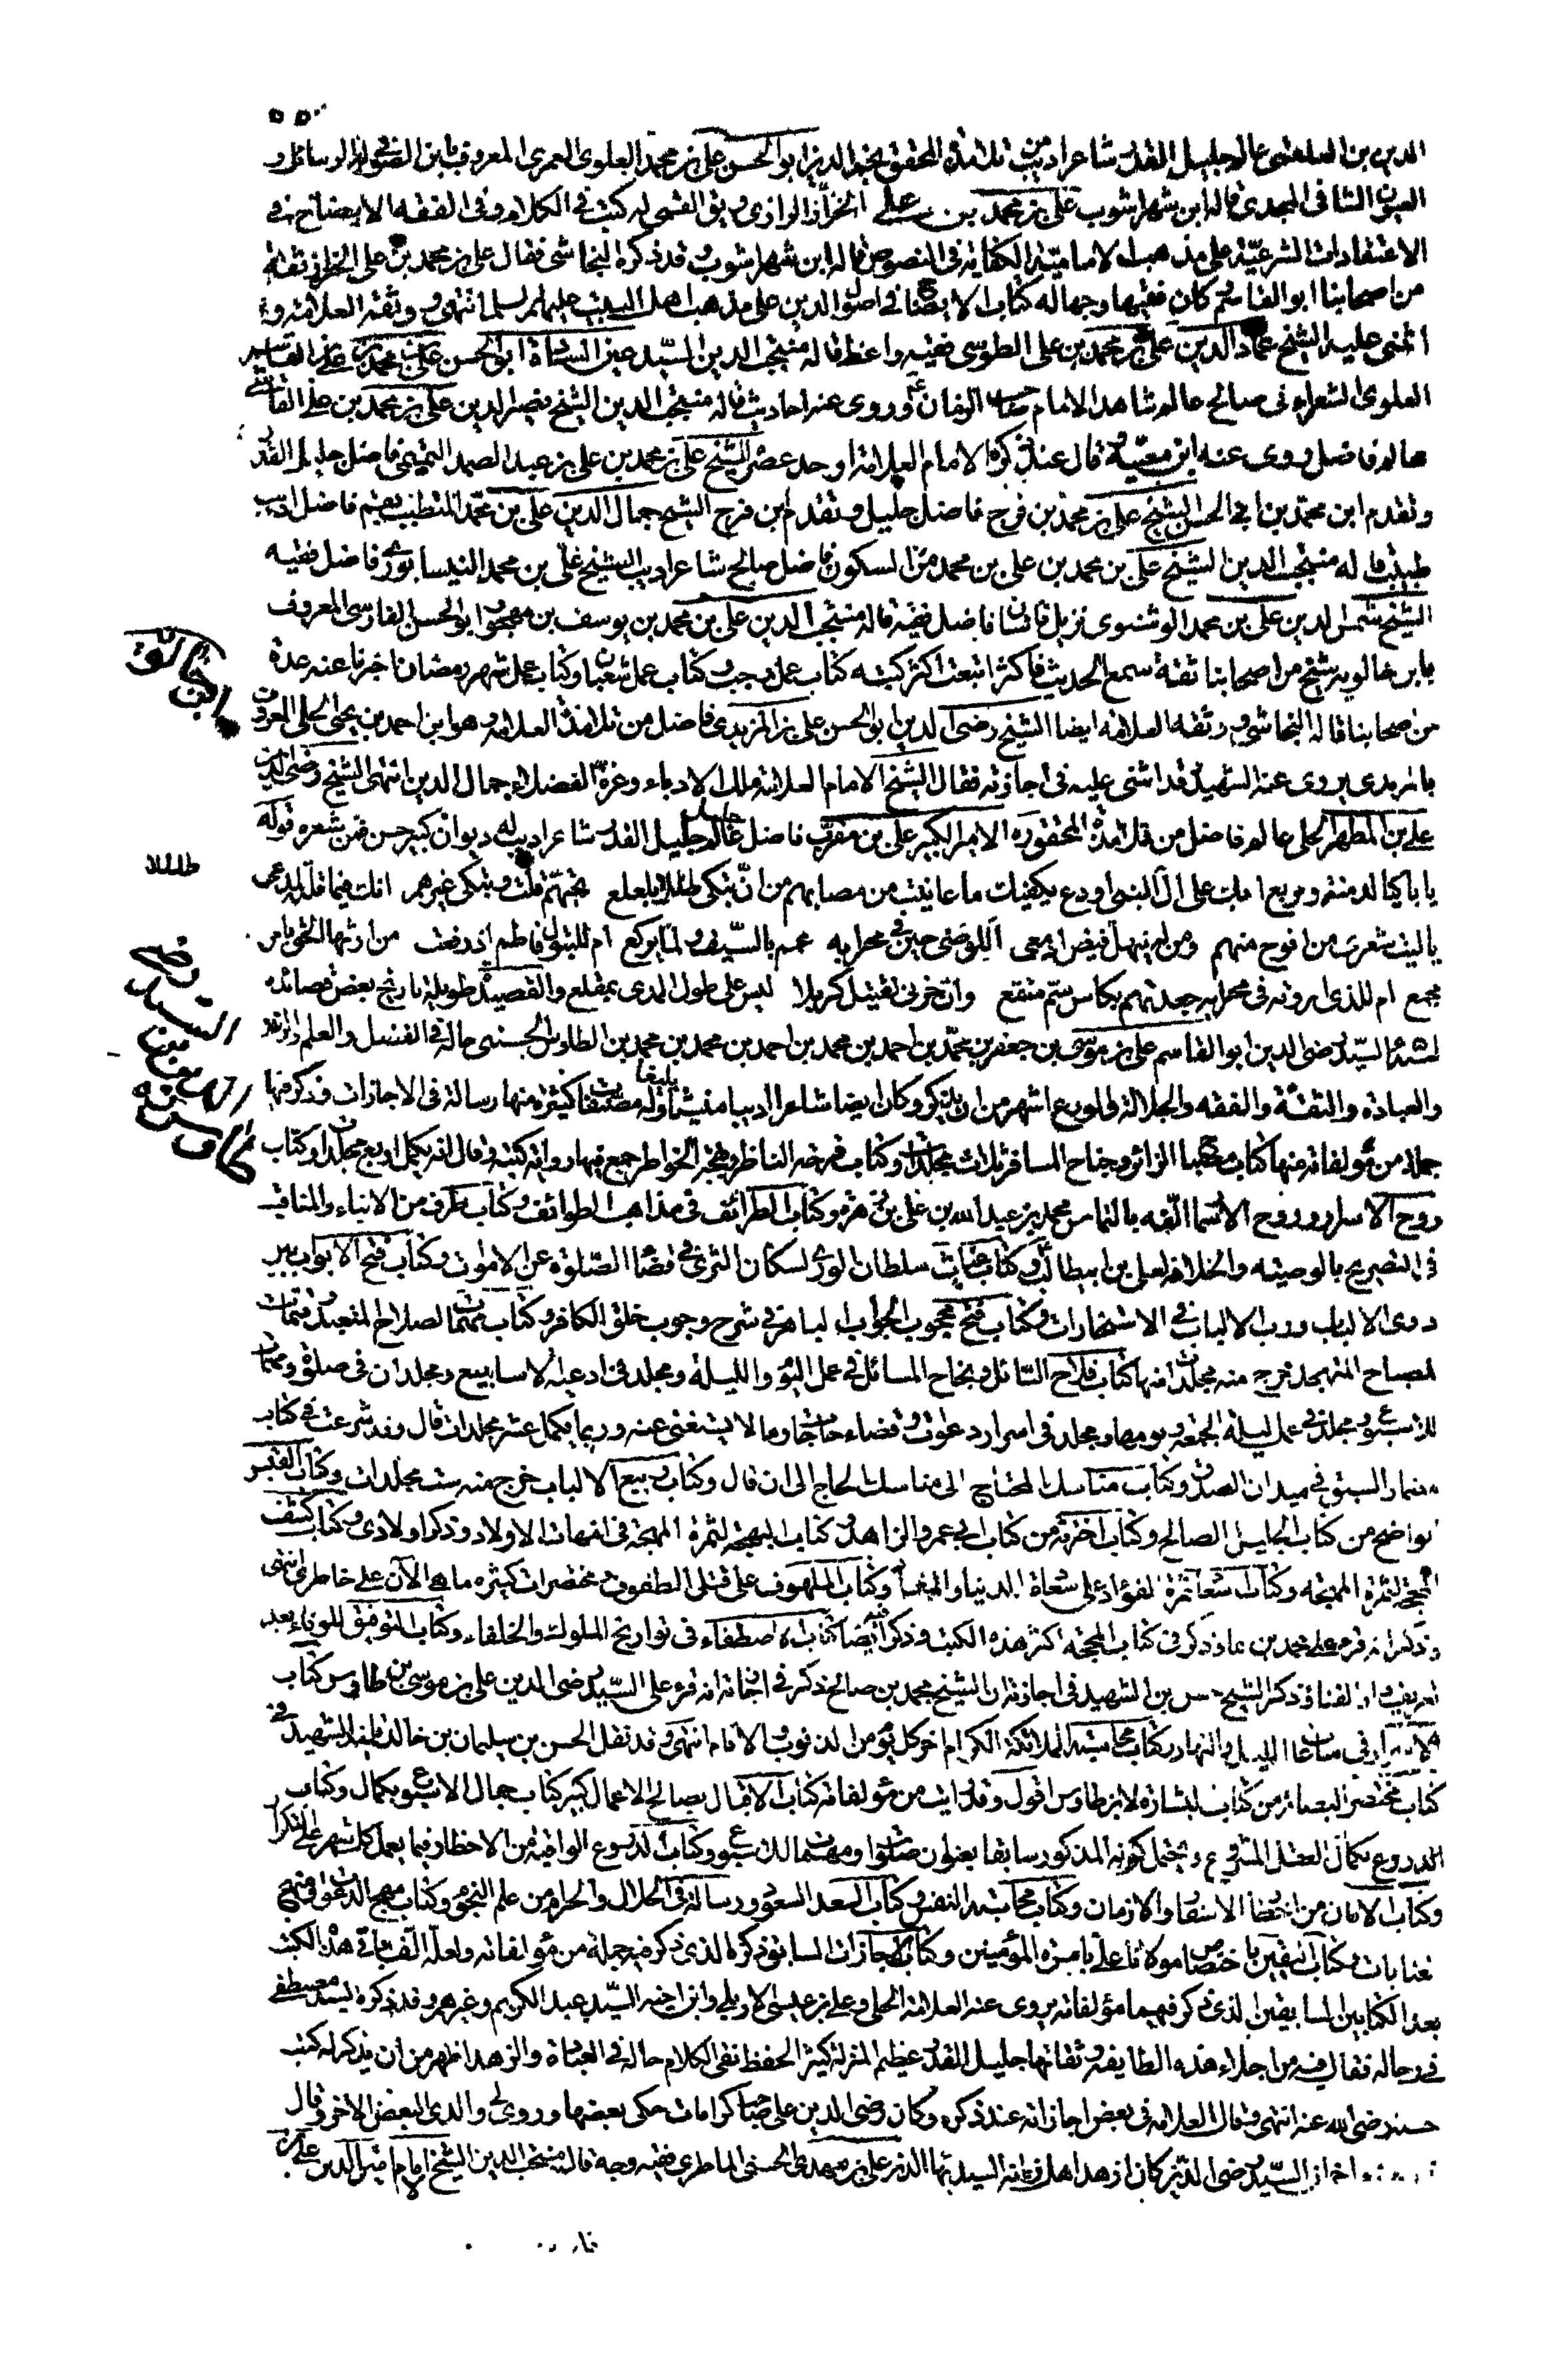 الدين بن العلقمى عالم جليل القدر شاعر اديب من تلامذة المحقق نجم الدين ابو الحسن على بن محمد العلوى العمرى المعروف بابن الصوفى له الرسائل و
العيون الشافى المجدى قاله ابن شهراشوب على بن محمد بن على الخزاز الرازى ويق القمى له كتب فى الكلام وفى الفقه الايضاح فى
الاعتقادات الشرعية على مذهب الامامية الكفاية فى النصوص قاله ابن شهراشوب وقد ذكره النجاشى فقال على بن محمد بن على الخزاز ثقة
من اصحابنا ابو القاسم كان فقيها وجها له كتاب الايضاح فى اصول الدين على مذهب اهل البيت عليهم السلم انتهى ووثقه العلامة و
اثنى عليه الشيخ عماد الدين على بن محمد بن على الطوسى فقيه واعظ قاله منتجب الدين السيد عين السادة ابو الحسن على بن محمد بن على بن القاسم
العلوى الشعرانى صالح عالم شاهد الامام صاحب الزمان وروى عنه احاديث قاله منتجب الدين الشيخ نصير الدين على بن محمد بن على القاشى
عالم فاضل روى عنه ابن معية وقال عند ذكره الامام العلامة اوحد عصره الشيخ على بن محمد بن على بن عبد الصمد التميمى فاضل جليل القدر
وتقدم ابن محمد بن ابى الحسن الشيخ على بن محمد بن فرج فاضل جليل وتقدم ابن فرج الشيخ جمال الدين على بن محمد المتطبب بقم فاضل اديب
طبيب قاله منتجب الدين الشيخ على بن محمد بن على بن محمد بن السكون فاضل صالح شاعر اديب الشيخ على بن محمد النيسابورى فاضل فقيه
الشيخ شمس الدين على بن محمد الوشنوى نزيل قاشان فاضل فقيه قاله منتجب الدين على بن محمد بن يوسف بن مهجور ابو الحسن الفارسى المعروف
بابن خالويه شيخ من اصحابنا ثقة سمع الحديث فاكثر ابتعت اكثر كتبه كتاب عمل رجب وكتاب عمل شعبان وكتاب عمل شهر رمضان اخبرنا عنه عدة
من اصحابنا قاله النجاشى ووثقه العلامة ايضا الشيخ رضى الدين ابو الحسن على بن المزيدى فاضل من تلامذة العلامة وهو ابن احمد بن يحيى الحلى المعروف
بالمزيدى يروى عنه الشهيد وقد اثنى عليه فى اجازته فقال الشيخ الامام العلامة ملك الادباء وغرة الفضلاء جمال الدين انتهى الشيخ رضى الدين
على بن المطهر الحلى عالم فاضل من تلامذة المحقق ره الامير الكبير على بن مقرب فاضل عالم جليل القدر شاعر اديب له ديوان كبير حسن فمن شعره قوله
يا باكيا لدمنة ومربع ابك على آل النبى او دع يكفيك ما عاينت من مصابهم من ان تبكى طللا بلعلع تحبهم قلت وتبكى غيرهم انك فيما قلته لمدعى
يا ليت شعرى من انوح منهم ومن له ينهل فيض ادمعى أللوصى حين فى محرابه عمم بالسيف ولما يركع ام للبتول فاطم اذ دفعت من ارثها الحق بامر
مجمع ام للذى اردته فى محرابه جعدتهم بكاس سم منقع وان حزنى لقتيل كربلا ليس على طول المدى بمقلع والقصيدة طويلة تاريخ بعض قصائده
السيد رضى الدين ابو القاسم على بن موسى بن جعفر بن محمد بن احمد بن محمد بن احمد بن محمد بن محمد بن الطاوس الحسنى حاله فى الفضل والعلم والزهد
والعبادة والثقة والفقه والجلالة والورع اشهر من ان يذكر وكان ايضا شاعرا اديبا منشيا بليغا وله مصنفات كثيرة منها رسالة فى الاجازات وذكر فيها
جملة من مؤلفاته منها كتاب مصباح الزائر وجناح المسافر ثلاث مجلدات وكتاب فرحة الناظر وبهجة الخواطر جمع فيها رواية كتبه وقال انه يكمل اربع مجلدات وكتاب
روح الاسرار وروح الاسمار الفه بالتماس محمد بن عبد الله بن على بن زهرة وكتاب الطرائف فى مذاهب الطوائف وكتاب طرف من الانباء والمناقب
فى التصريح بالوصية والخلافة لعلى بن ابيطالب وكتاب غياث سلطان الورى لسكان الثرى فى قضاء الصلوة عن الاموات وكتاب فتح الابواب بين
ذوى الالباب ورب الارباب فى الاستخارات وكتاب فتح محجوب الجواب الباهر فى شرح وجوب خلق الكافر وكتاب مهمات لصلاح المتعبد وتتمات
لمصباح المتهجد خرج منه مجلدات منها كتاب فلاح السائل ونجاح المسائل فى عمل اليوم والليلة ومجلد فى ادعية الاسابيع ومجلدان فى صلوة ومهمات
للاسبوع ومجلد فى عمل ليلة الجمعة ويومها ومجلد فى اسرار دعوات وقضاء حاجات وما لا يستغنى عنه وربما يكمل عشر مجلدات قال وقد شرعت فى كتاب
مضمار السبق فى ميدان الصدق وكتاب مناسك المحتاج الى مناسك الحاج الى ان قال وكتاب ربيع الالباب خرج منه ست مجلدات وكتاب القبس
الواضح من كتاب الجليس الصالح وكتاب اخترته من كتاب ابى عمرو الزاهد وكتاب البهجة لثمرة المهجة فى امهات الاولاد وذكر اولادى وكتاب كشف
المحجة لثمرة المهجة وكتاب اسعاد ثمرة الفؤاد على سعادة الدنيا والمعاد وكتاب الملهوف على قتلى الطفوف ومختصرات كثيرة ما هى الآن على خاطرى انتهى
وذكر انه فرغ على محمد بن نما وذكر فى كتاب المحجة اكثر هذه الكتب وذكر فيه ايضا كتاب الاصطفاء فى تواريخ الملوك والخلفاء وكتاب التوفيق للوفاء بعد
تفريق دار الفناء وذكر الشيخ حسن بن الشهيد فى اجازته ان الشيخ محمد بن صالح ذكر فى اجازته انه قرء على السيد رضى الدين على بن موسى بن طاوس كتاب
الاسرار فى ساعات الليل والنهار وكتاب محاسبة الملائكة الكرام اخر كل يوم من الذنوب والاثام انتهى وقد نقل الحسن بن سليمان بن خالد تلميذ الشهيد فى
كتاب مختصر البصائر من كتاب البشارة لابن طاوس اقول وقد رايت من مؤلفاته كتاب الاقبال بصالح الاعمال كبير كتاب جمال الاسبوع بكمال وكتاب
الدروع بكمال العمل المشروع ويحتمل كونه المذكور سابقا بعنوان صلوات ومهمات للاسبوع وكتاب الدروع الواقية من الاخطار فيما يعمل كل شهر على التكرار
وكتاب الامان من اخطار الاسفار والازمان وكتاب محاسبة النفس وكتاب السعد السعود ورسالة فى الحلال والحرام من علم النجوم وكتاب مهج الدعوات ومنهج
العنايات وكتاب اليقين باختصاص مولانا على بامرة المؤمنين وكتاب الاجازات السابق ذكره الذى ذكر فيه جملة من مؤلفاته ولعله الف باقى هذه الكتب
بعد الكتابين السابقين الذى ذكر فيهما مؤلفاته يروى عنه العلامة الحلى وعلى بن عيسى الاربلى وابن اخيه السيد عبد الكريم وغيرهم وقد ذكره السيد مصطفى
فى رجاله فقال فيه من اجلاء هذه الطايفة وثقاتها جليل القدر عظيم المنزلة كثير الحفظ نقى الكلام حاله فى العبادة والزهد اظهر من ان يذكر له كتب
حسنة رضى الله عنه انتهى وقال العلامة فى بعض اجازاته عند ذكره وكان رضى الدين على صاحب كرامات حكى بعضها وروى لى والدى البعض الاخر وقال
السيد رضى الدين كان ازهد اهل زمانه السيد بهاء الدين على بن مهدى الحسينى المامطيرى فقيه وجه قاله منتجب الدين الشيخ الامام على بن
ابن خالويه
طللا
رضى الدين
ابن طاوس